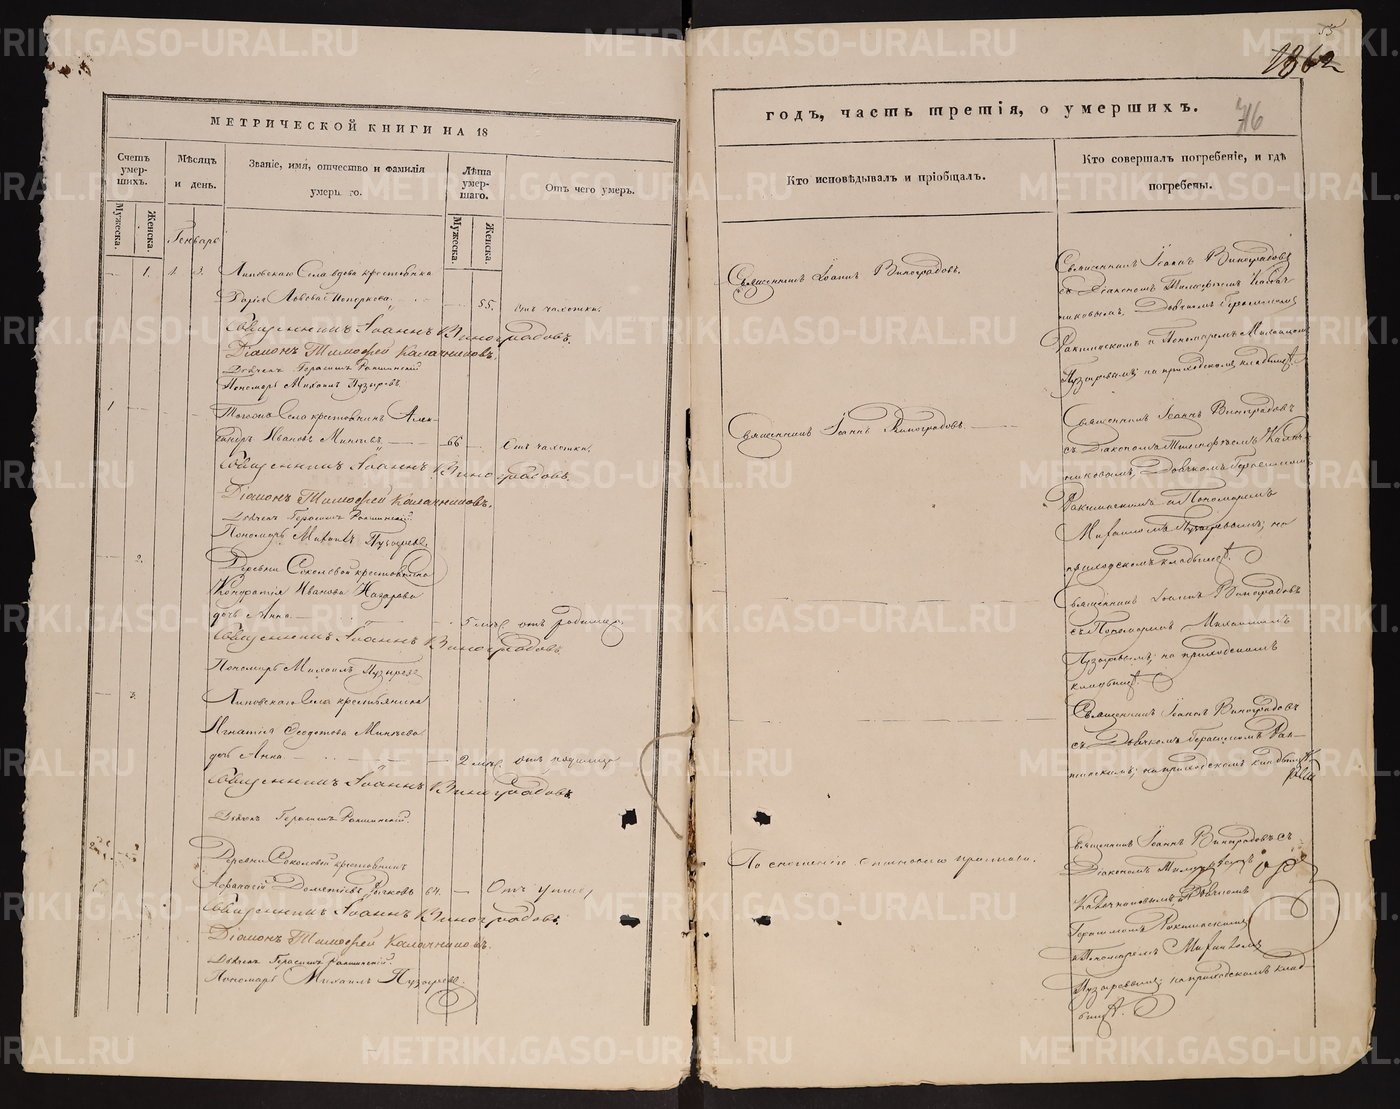 55
1862
МЕТРИЧЕСКОЙ КНИГИ НА 18
годъ, часть третія, о умершихъ.
716
Счетъ умер-шихъ.
Мужеска.
Женска.
Мѣсяцъ и день.
Званіе, имя, отчество и фамилія умершаго.
Лѣта умер-шаго.
Мужеска.
Женска.
Отъ чего умеръ.
Кто исповѣдывалъ и пріобщалъ.
Кто совершалъ погребеніе, и гдѣ погребены.
Генварь
1.
Липовскаго Села вдова крестьянка
Дарія Львова
55.
отъ чахотки.
Священникъ Іоаннъ Виноградовъ.
Діаконъ Тимофей Калачниковъ.
Дьячекъ Герасимъ Ракшинскій
Пономарь Михаилъ Пузыревъ
Священникъ Іоаннъ Виноградовъ.
Священникъ Іоаннъ Виноградовъ
съ Діакономъ Тимофеемъ Калач-
никовымъ, Дьячкомъ Герасимомъ
Ракшинскимъ и Пономаремъ Михаиломъ
Пузыревымъ; на приходскомъ кладбищѣ.
1
Тогоже Села крестьянинъ Алек-
сандръ Ивановъ Минѣевъ
66
отъ чахотки.
Священникъ Іоаннъ Виноградовъ.
Діаконъ Тимофей Калачниковъ.
Дьячекъ Герасимъ Ракшинскій.
Пономарь Михаилъ Пузыревъ.
Священникъ Іоаннъ Виноградовъ.
Священникъ Іоаннъ Виноградовъ
съ Діакономъ Тимофеемъ Калач-
никовымъ, Дьячкомъ Герасимомъ
Ракшинскимъ и Пономаремъ
Михаиломъ Пузыревымъ; на
приходскомъ кладбищѣ.
2.
Деревни Соколовой крестьянина
Кондратія Иванова Назарова
дочь Анна
5 мѣс.
отъ родимца.
Священникъ Іоаннъ Виноградовъ
Пономарь Михаилъ Пузыревъ
Священникъ Іоаннъ Виноградовъ
съ Пономаремъ Михаиломъ
Пузыревымъ; на приходскомъ
кладбищѣ.
3.
Липовскаго Села крестьянина
Игнатія Ѳедотова Минѣева
дочь Анна
2 мѣс.
отъ родимца
Священникъ Іоаннъ Виноградовъ
Дьячекъ Герасимъ Ракшинскій.
Священникъ Іоаннъ Виноградовъ
съ Дьячкомъ Герасимомъ Рак-
шинскимъ; на приходскомъ кладбищѣ
Деревни Соколовой крестьянинъ
Афанасій Дометіевъ Рычковъ
64.
Отъ
Священникъ Іоаннъ Виноградовъ.
Діаконъ Тимофей Калачниковъ.
Дьячекъ Герасимъ Ракшинскій.
Пономарь Михаилъ Пузыревъ.
По
Священникъ Іоаннъ Виноградовъ съ
Діакономъ Тимофеемъ
Калачниковымъ, Дьячкомъ
Герасимомъ Ракшинскимъ
и Пономаремъ Михаиломъ
Пузыревымъ; на приходскомъ клад-
бищѣ.